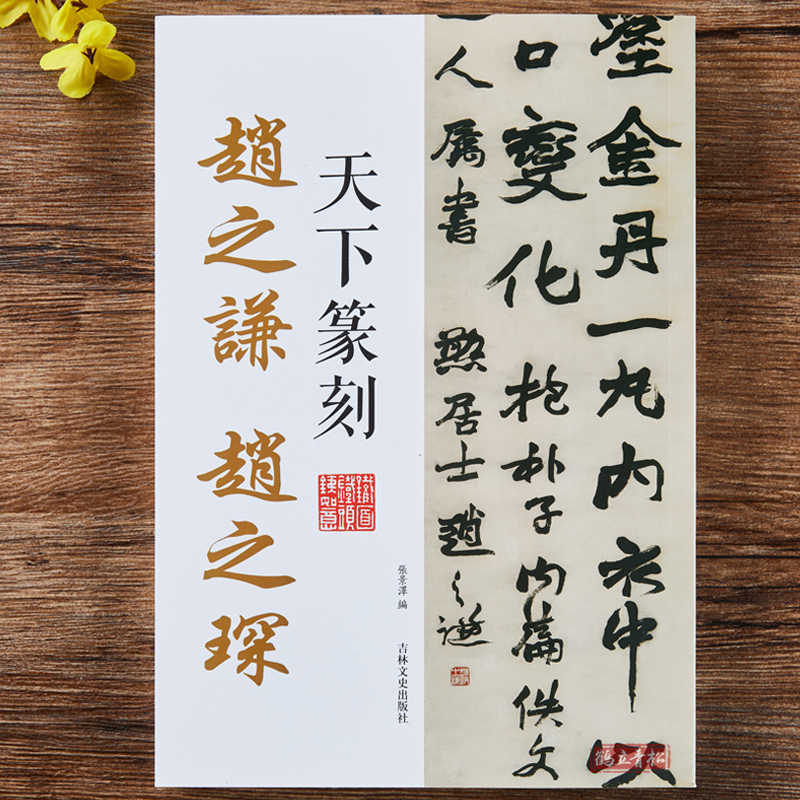 金丹一丸內衣中以
口變化 抱朴子內篇佚文
人属書 居士趙之謙
天下篆刻
趙之謙 趙之琛
張景澤 編
吉林文史出版社
鶴立青松